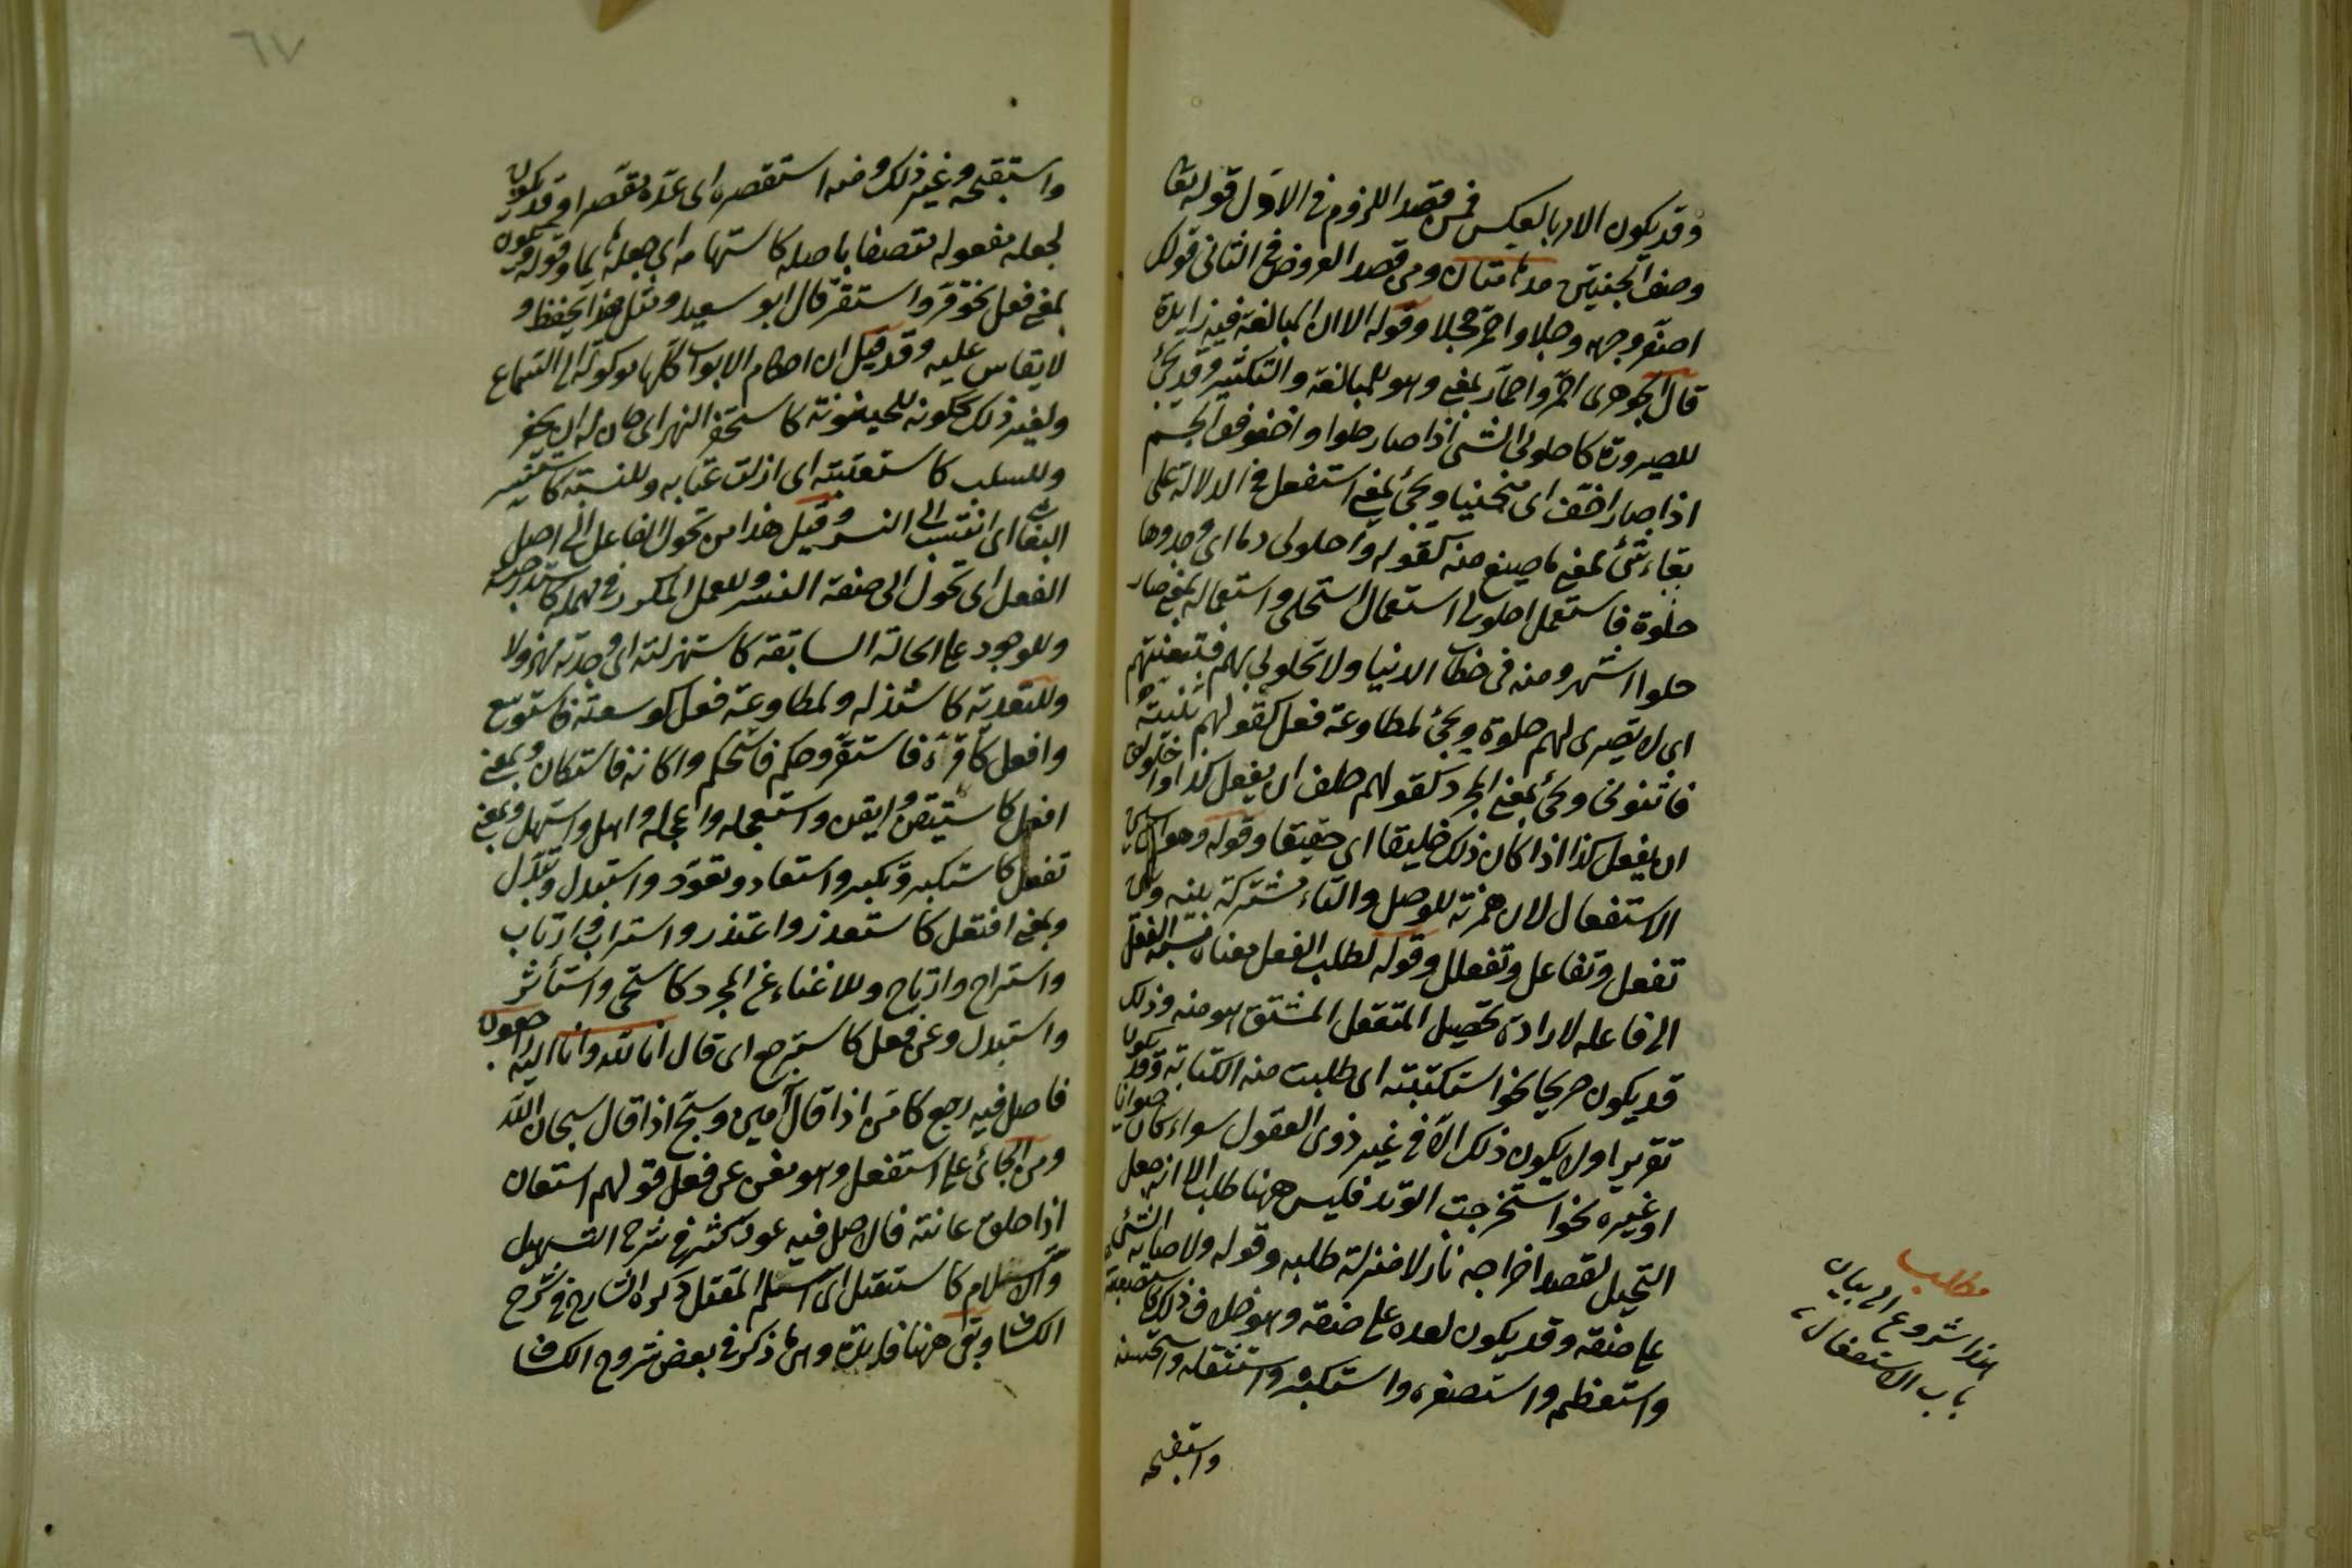 وقد يكون الامر بالعكس فمن قصد اللزوم في الاول قوله تعا
وصف الجنتين مدهامتان ومن قصد العروض في الثاني قولك
اصفر وجهه وجلا واحمر خجلا وقوله الا ان المبالغة فيه زايدة
قال الجوهري احمر واحمار بمعنى وهو للمبالغة والتكثير وقد يجئ
للصيرورة كاحلولى الشئ اذا صار حلوا واحقوقف الجسم
اذا صار احقف اى منحنيا ويجئ بمعنى استفعل في الدلالة على
بقاء شئ بمعنى ما صيغ منه كقوله واحلولى دما اى وجدوها
حلوة فاستعمل احلولى استعمال استحلى واستعماله بمعنى صار
حلوا اشتهر ومنه في خطاب الدنيا ولا تحلولي لهم فتفتنيهم
اى لا تصيرى لهم حلوة ويجئ لمطاوعة فعل كقولهم ثنيته
فاثنونى ويجئ بمعنى المجرد كقولهم خلق ان يفعل كذا واخلولق
ان يفعل كذا اذا كان ذلك خليقا اى حقيقا وقوله وهو سداسي
الاستفعال لان همزته للوصل والتاء مشتركة بينه وبين
تفعل وتفاعل وتفعلل وقوله لطلب الفعل معناه نسبة الفعل
الى فاعله لارادة تحصيل الفعل المشتق هو منه وذلك
قد يكون صريحا نحو استكتبته اى طلبت منه الكتابة وقد يكون
تقديرا ولا يكون ذلك الا في غير ذوى العقول سواء كان حيوانا
او غيره نحو استخرجت الوتد فليس ههنا طلب الا انه جعل
التحيل لقصد اخراجه نازلا منزلة طلبه وقوله ولاصابة الشئ
على صفة وقد يكون لعده على صفة وهو داخل في ذلك كاستصعبته
واستعظم واستصغره واستكبره واستثقله واستحسنه
واستقبحه
مطلب
هذا شروع الى بيان
باب الاستفعال
٦٧
واستقبحه وغير ذلك ومنه استقصره اى عده مقصرا وقد يكون
لجعله مفعوله متصفا باصله كاستهامه اى جعله هايما وقوله وقد يكون
بمعنى فعل نحو قر واستقر قال ابو سعيد ومثل هذا يحفظ و
لا يقاس عليه وقد قيل ان احكام الابواب كلها موكولة الى السماع
ولغير ذلك ككونه للحينونة كاستحفر النهر اى حان له ان يحفر
وللسلب كاستعتبته اى ازلت عتابه وللنسبة كاستنسر
البغاث اى انتسب الى النسر وقيل هذا من تحول الفاعل الى اصل
الفعل اى تحول الى صفة النسر وللعمل المكرر في مهلة كاستدرجته
وللوجود على الحالة السابقة كاستهزلته اى وجدته مهزولا
وللتعدية كاستذله ولمطاوعة فعل كوسعته فاستوسع
وافعل كاقره فاستقر وحكم فاستحكم واكانه فاستكان وبمعنى
افعل كاستيقن وايقن واستعجله واعجله واهل واستهل وبمعنى
تفعل كاستكبر وتكبر واستعاد وتعود واستبدل وتبدل
وبمعنى افتعل كاستعذر واعتذر واستراب وارتاب
واستراح وارتاح وللاغناء عن المجرد كاستحى واستأثر
واستبدل وعن فعل كاسترجع اى قال انا لله وانا اليه راجعون
فاصل فيه رجع كامن اذا قال آمين وسبح اذا قال سبحان الله
ومن الجائى على استفعل وهو مغن عن فعل قولهم استعان
اذا حلق عانته فالاصل فيه عون كثر في شرح التسهيل
والاستسلام كاستقتل اى استسلم للقتل ذكره الشارح في شرح
الكشاف وبقى ههنا فايدة وهي ما ذكر في بعض شروح الكشاف